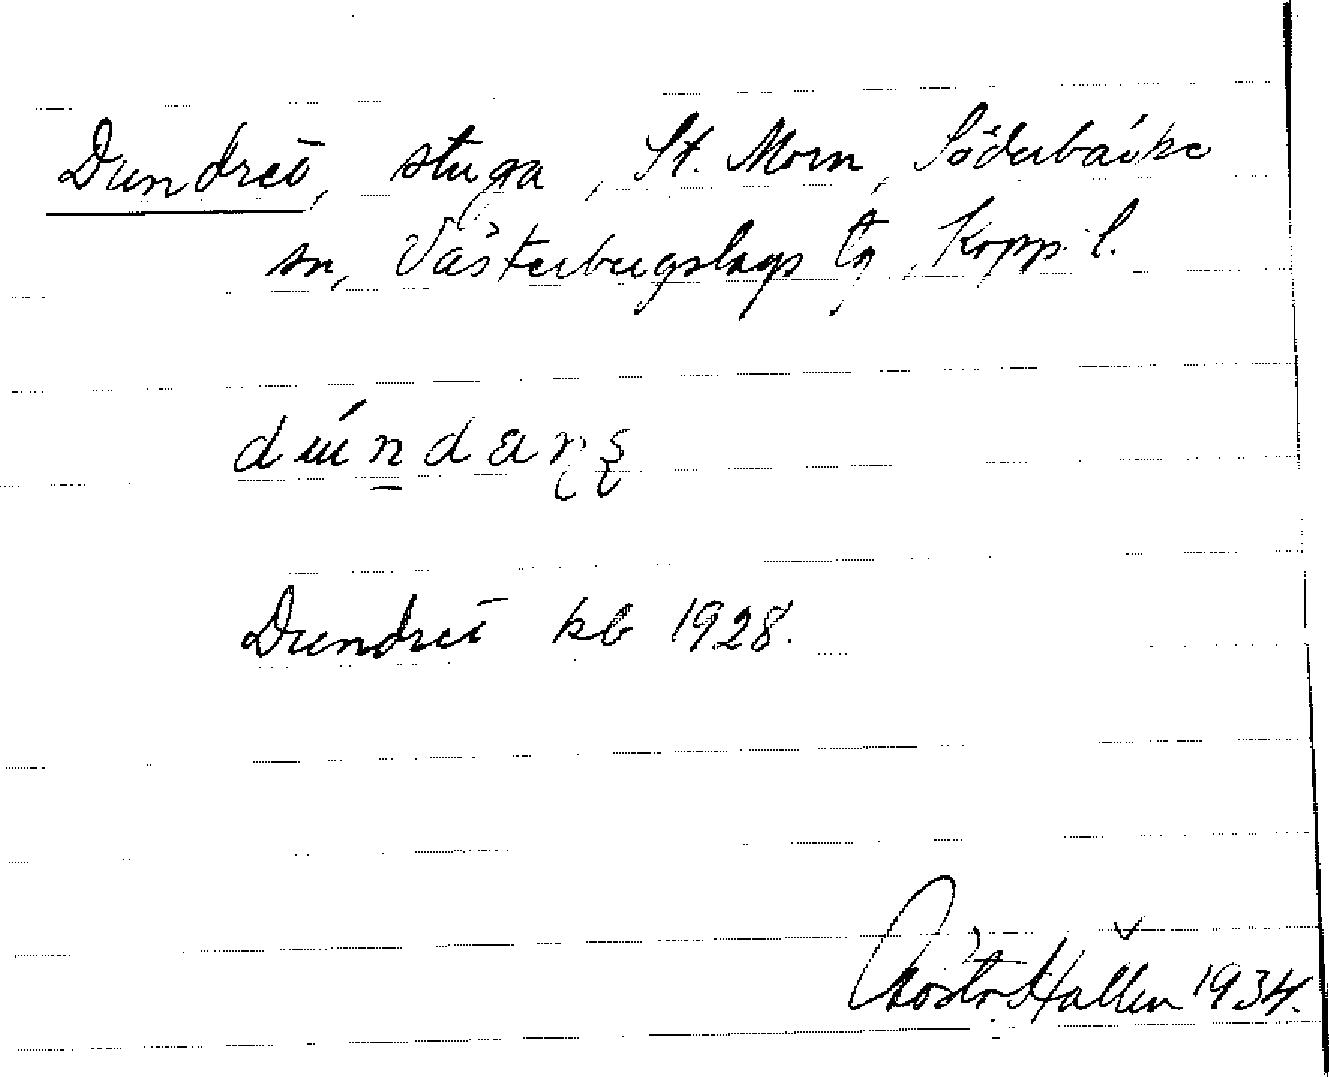 Dundret, stuga, St. Morn, Söderbärke
sn, Västerbergslags tg, Kopp. l.
Dundret kb 1928.
Hallén 1934.